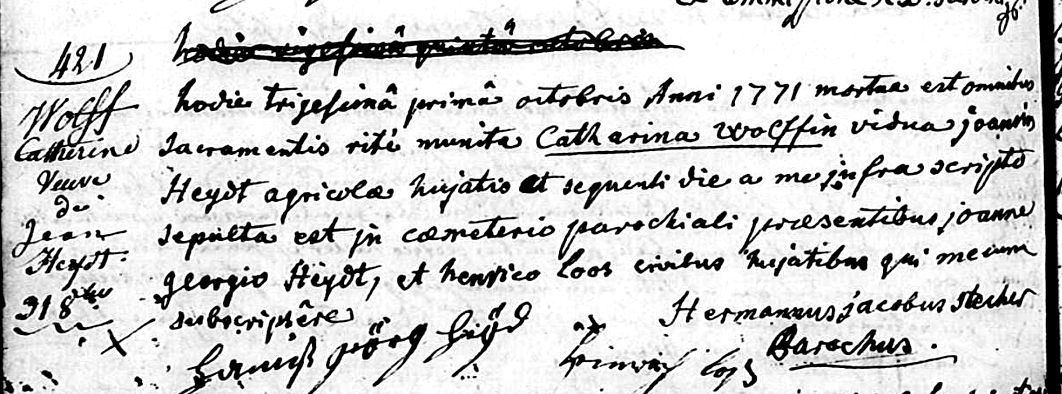 421
Wolff
Catherine
Veuve
de
Jean
Heydt
31 8bre
hodie vigesimâ quintâ octobris
hodie trigesimâ primâ octobris Anni 1771 mortua est omnibus
sacramentis ritè munita Catharina Wolffin vidua joannis
Heydt agricolæ hujatis et sequenti die a me jnfra scripto
sepulta est jn cœmeterio parochiali præsentibus joanne
georgio Heydt, et henrico Loos civibus hujatibus qui mecum
subscripsêre
Hermannus jacobus
Parochus.